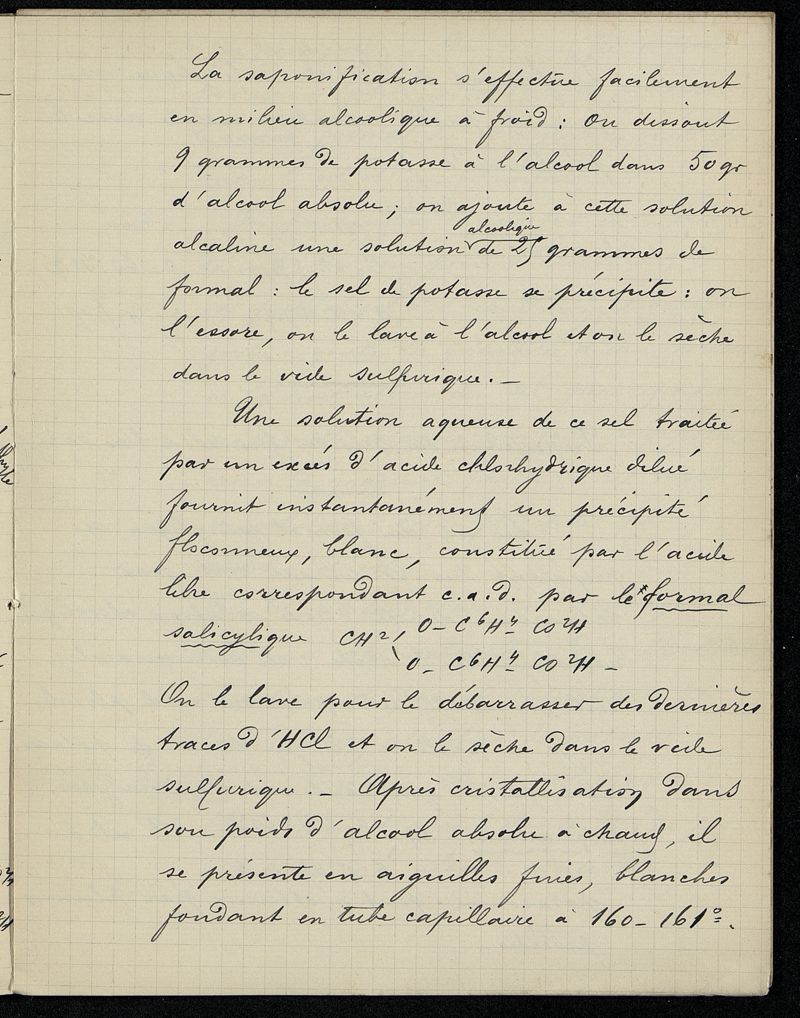 La saponification s'effectue facilement
en milieu alcoolique à froid : on dissout
9 grammes de potasse à l'alcool dans 50 gr
d'alcool absolu ; on ajoute à cette solution
alcoolique
alcaline une solution de 25 grammes de
formal : le sel de potasse se précipite : on
l'essore, on le lave à l'alcool et on le sèche
dans le vide sulfurique. _
Une solution aqueuse de ce sel traitée
par un excès d'acide chlorhydrique dilué
fournit instantanément un précipité
floconneux, blanc, constitué par l'acide
libre correspondant c.a.d. par le formal
salicylique CH² O - C⁶H⁴ - CO²H
O - C⁶H⁴ - CO²H -
On le lave pour le débarrasser des dernières
traces d'HCl et on le sèche dans le vide
sulfurique. _ Après cristallisation dans
son poids d'alcool absolu à chaud, il
se présente en aiguilles fines, blanches
fondant en tube capillaire à 160 - 161°.